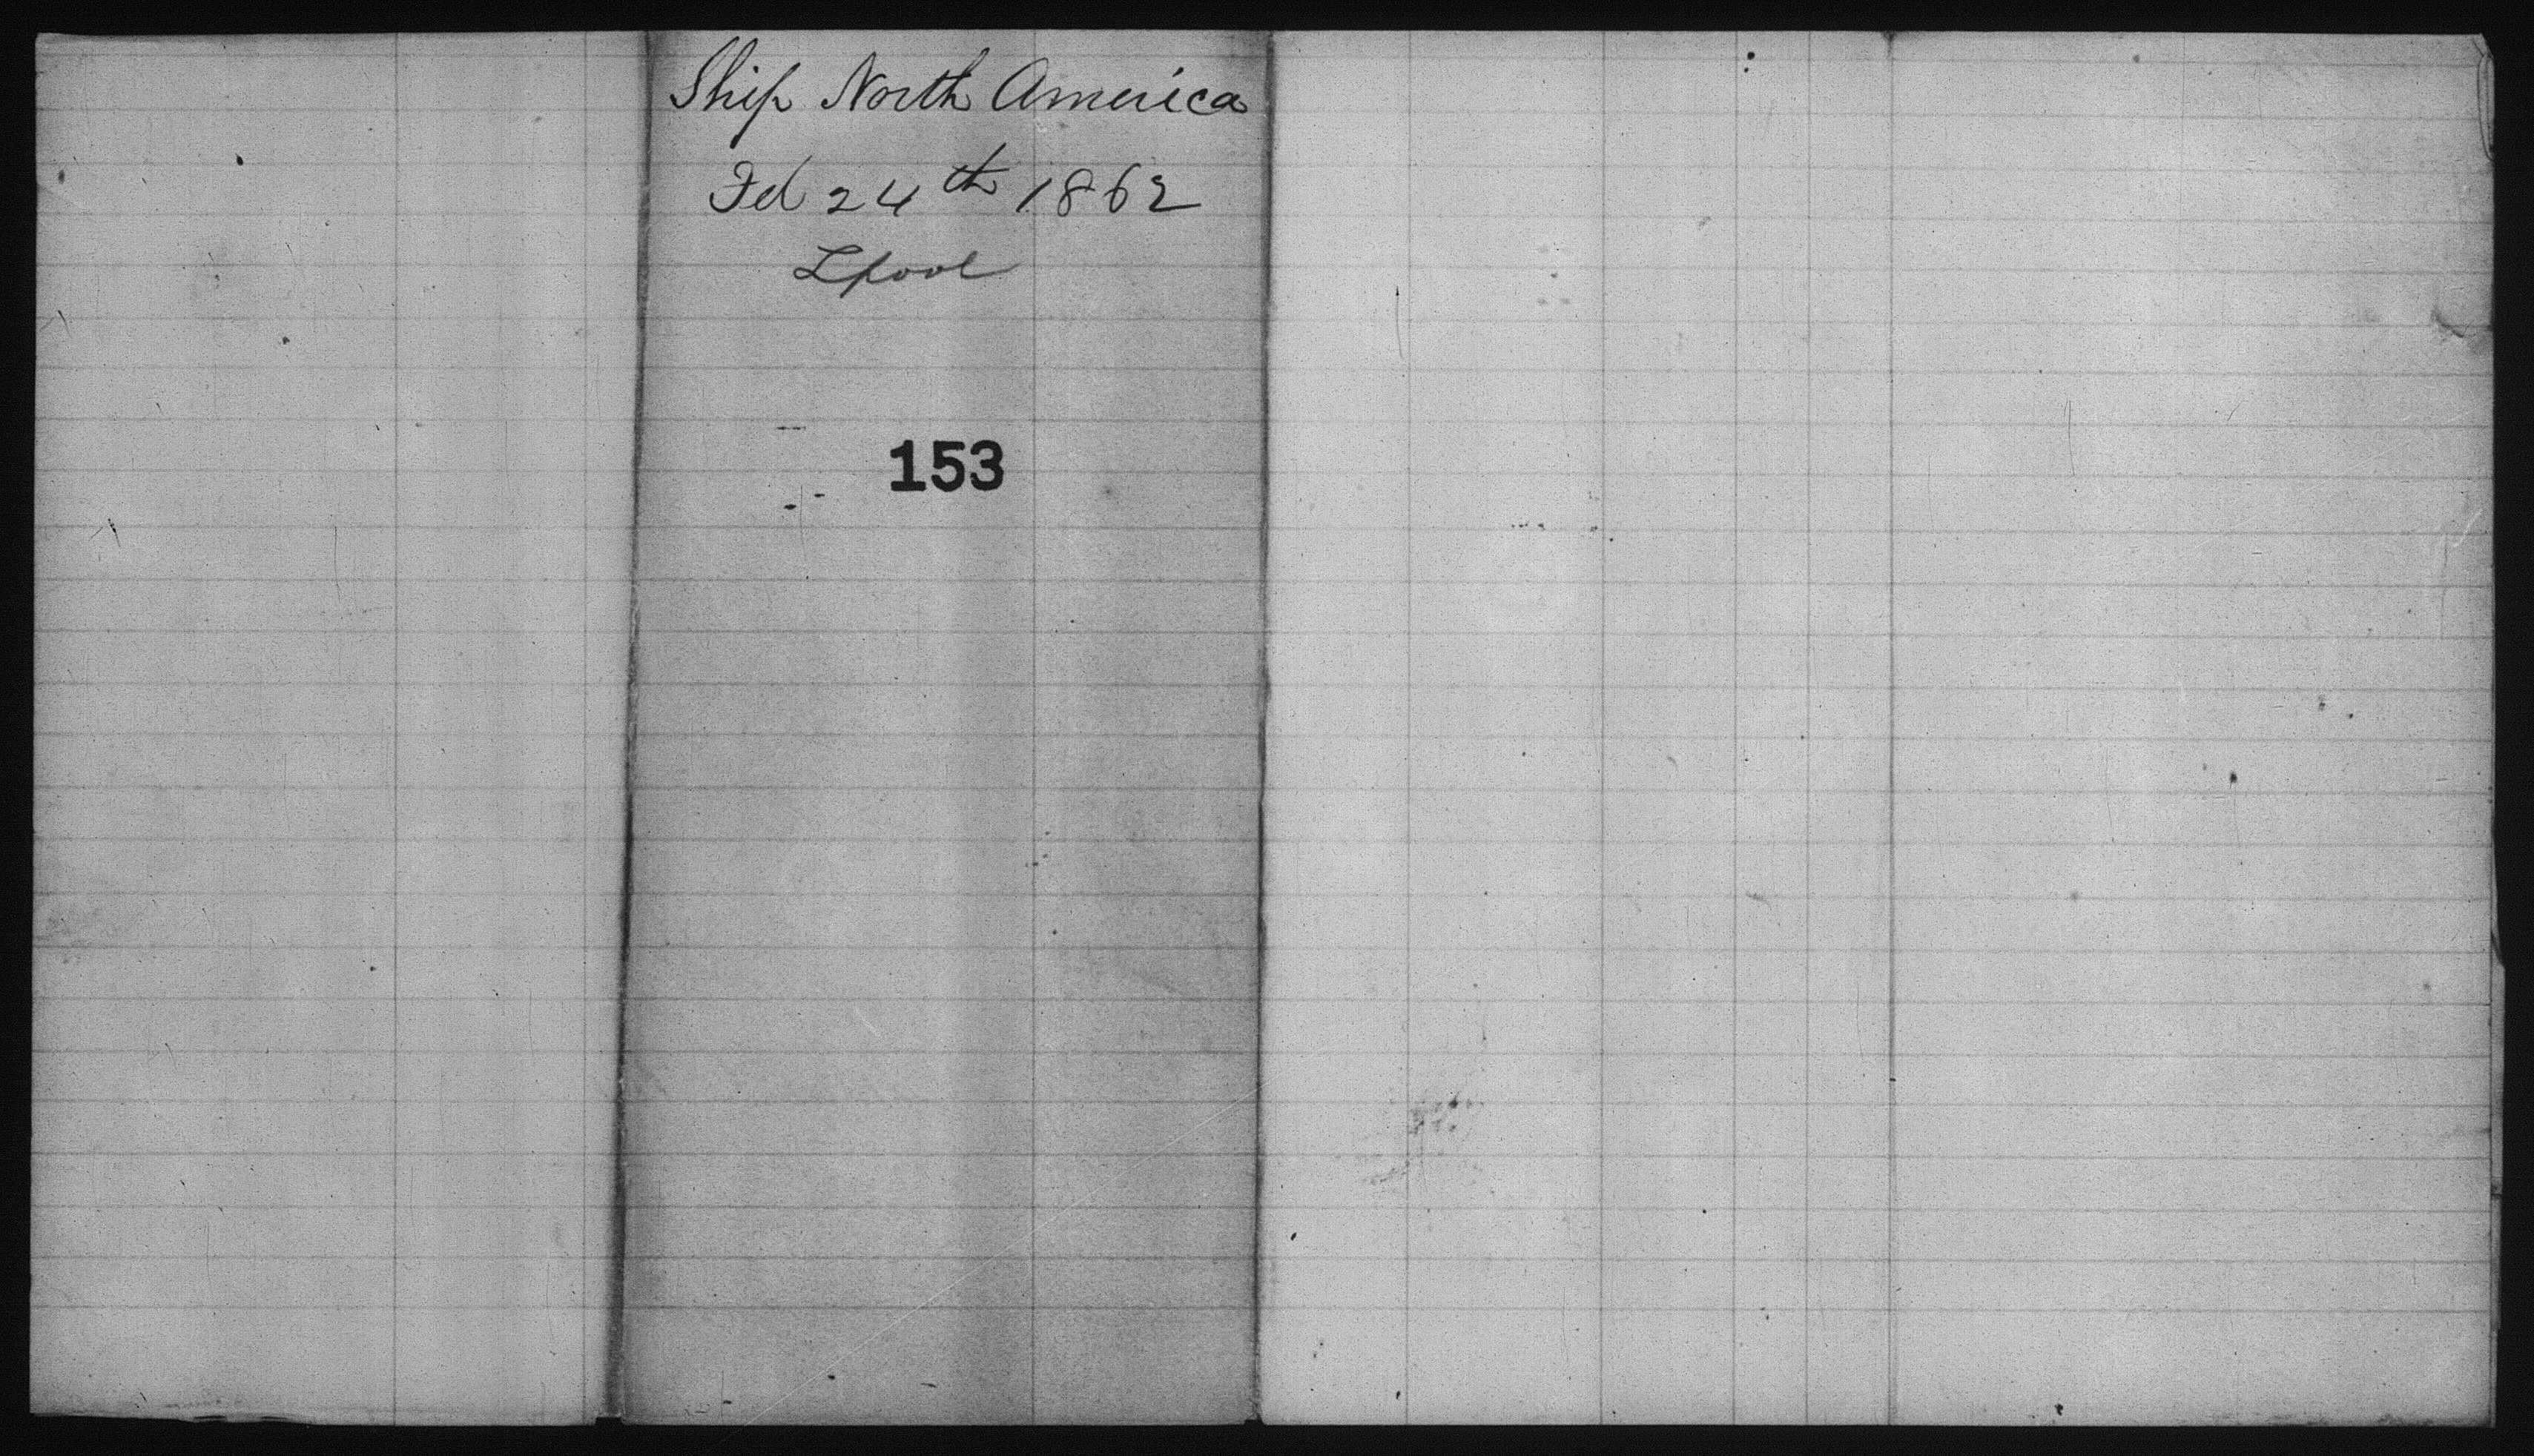 Ship North America
Feb 24th 1862
Lpool
153